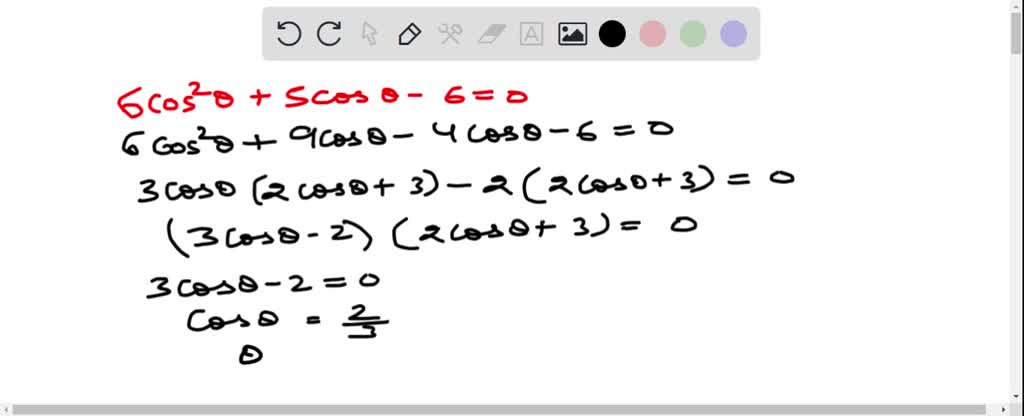 A
6cos²θ + 5cosθ - 6 = 0
6cos²θ + 9cosθ - 4cosθ - 6 = 0
3cosθ (2cosθ + 3) - 2 (2cosθ + 3) = 0
(3cosθ - 2) (2cosθ + 3) = 0
3cosθ - 2 = 0
cosθ = 2/3
θ